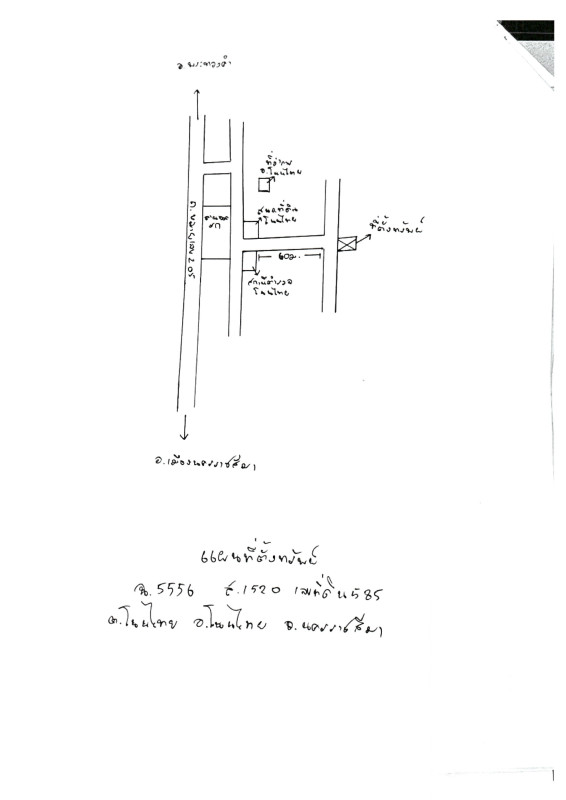 อ.พระทองคำ
ที่ว่าการ
อ.โนนไทย
สนง.ที่ดิน
โนนไทย
ที่ตั้งทรัพย์
ถ.หมายเลข 205
60ม.
สถานีตำรวจ
โนนไทย
อ.เมืองนครราชสีมา
แผนที่ตั้งทรัพย์
ฉ.5556 ร.1520 เลขที่ดิน 585
ต.โนนไทย อ.โนนไทย จ.นครราชสีมา